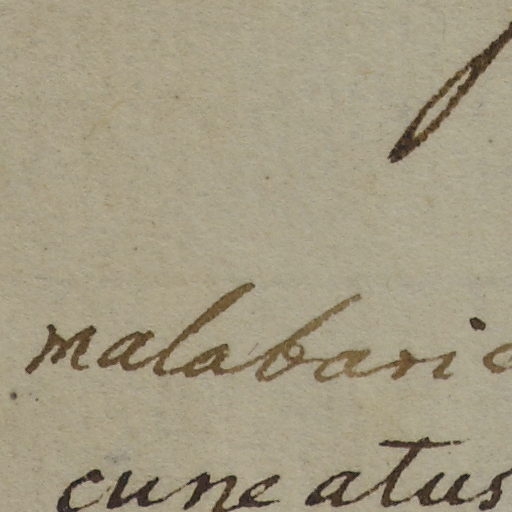 malabaric
cuneatus